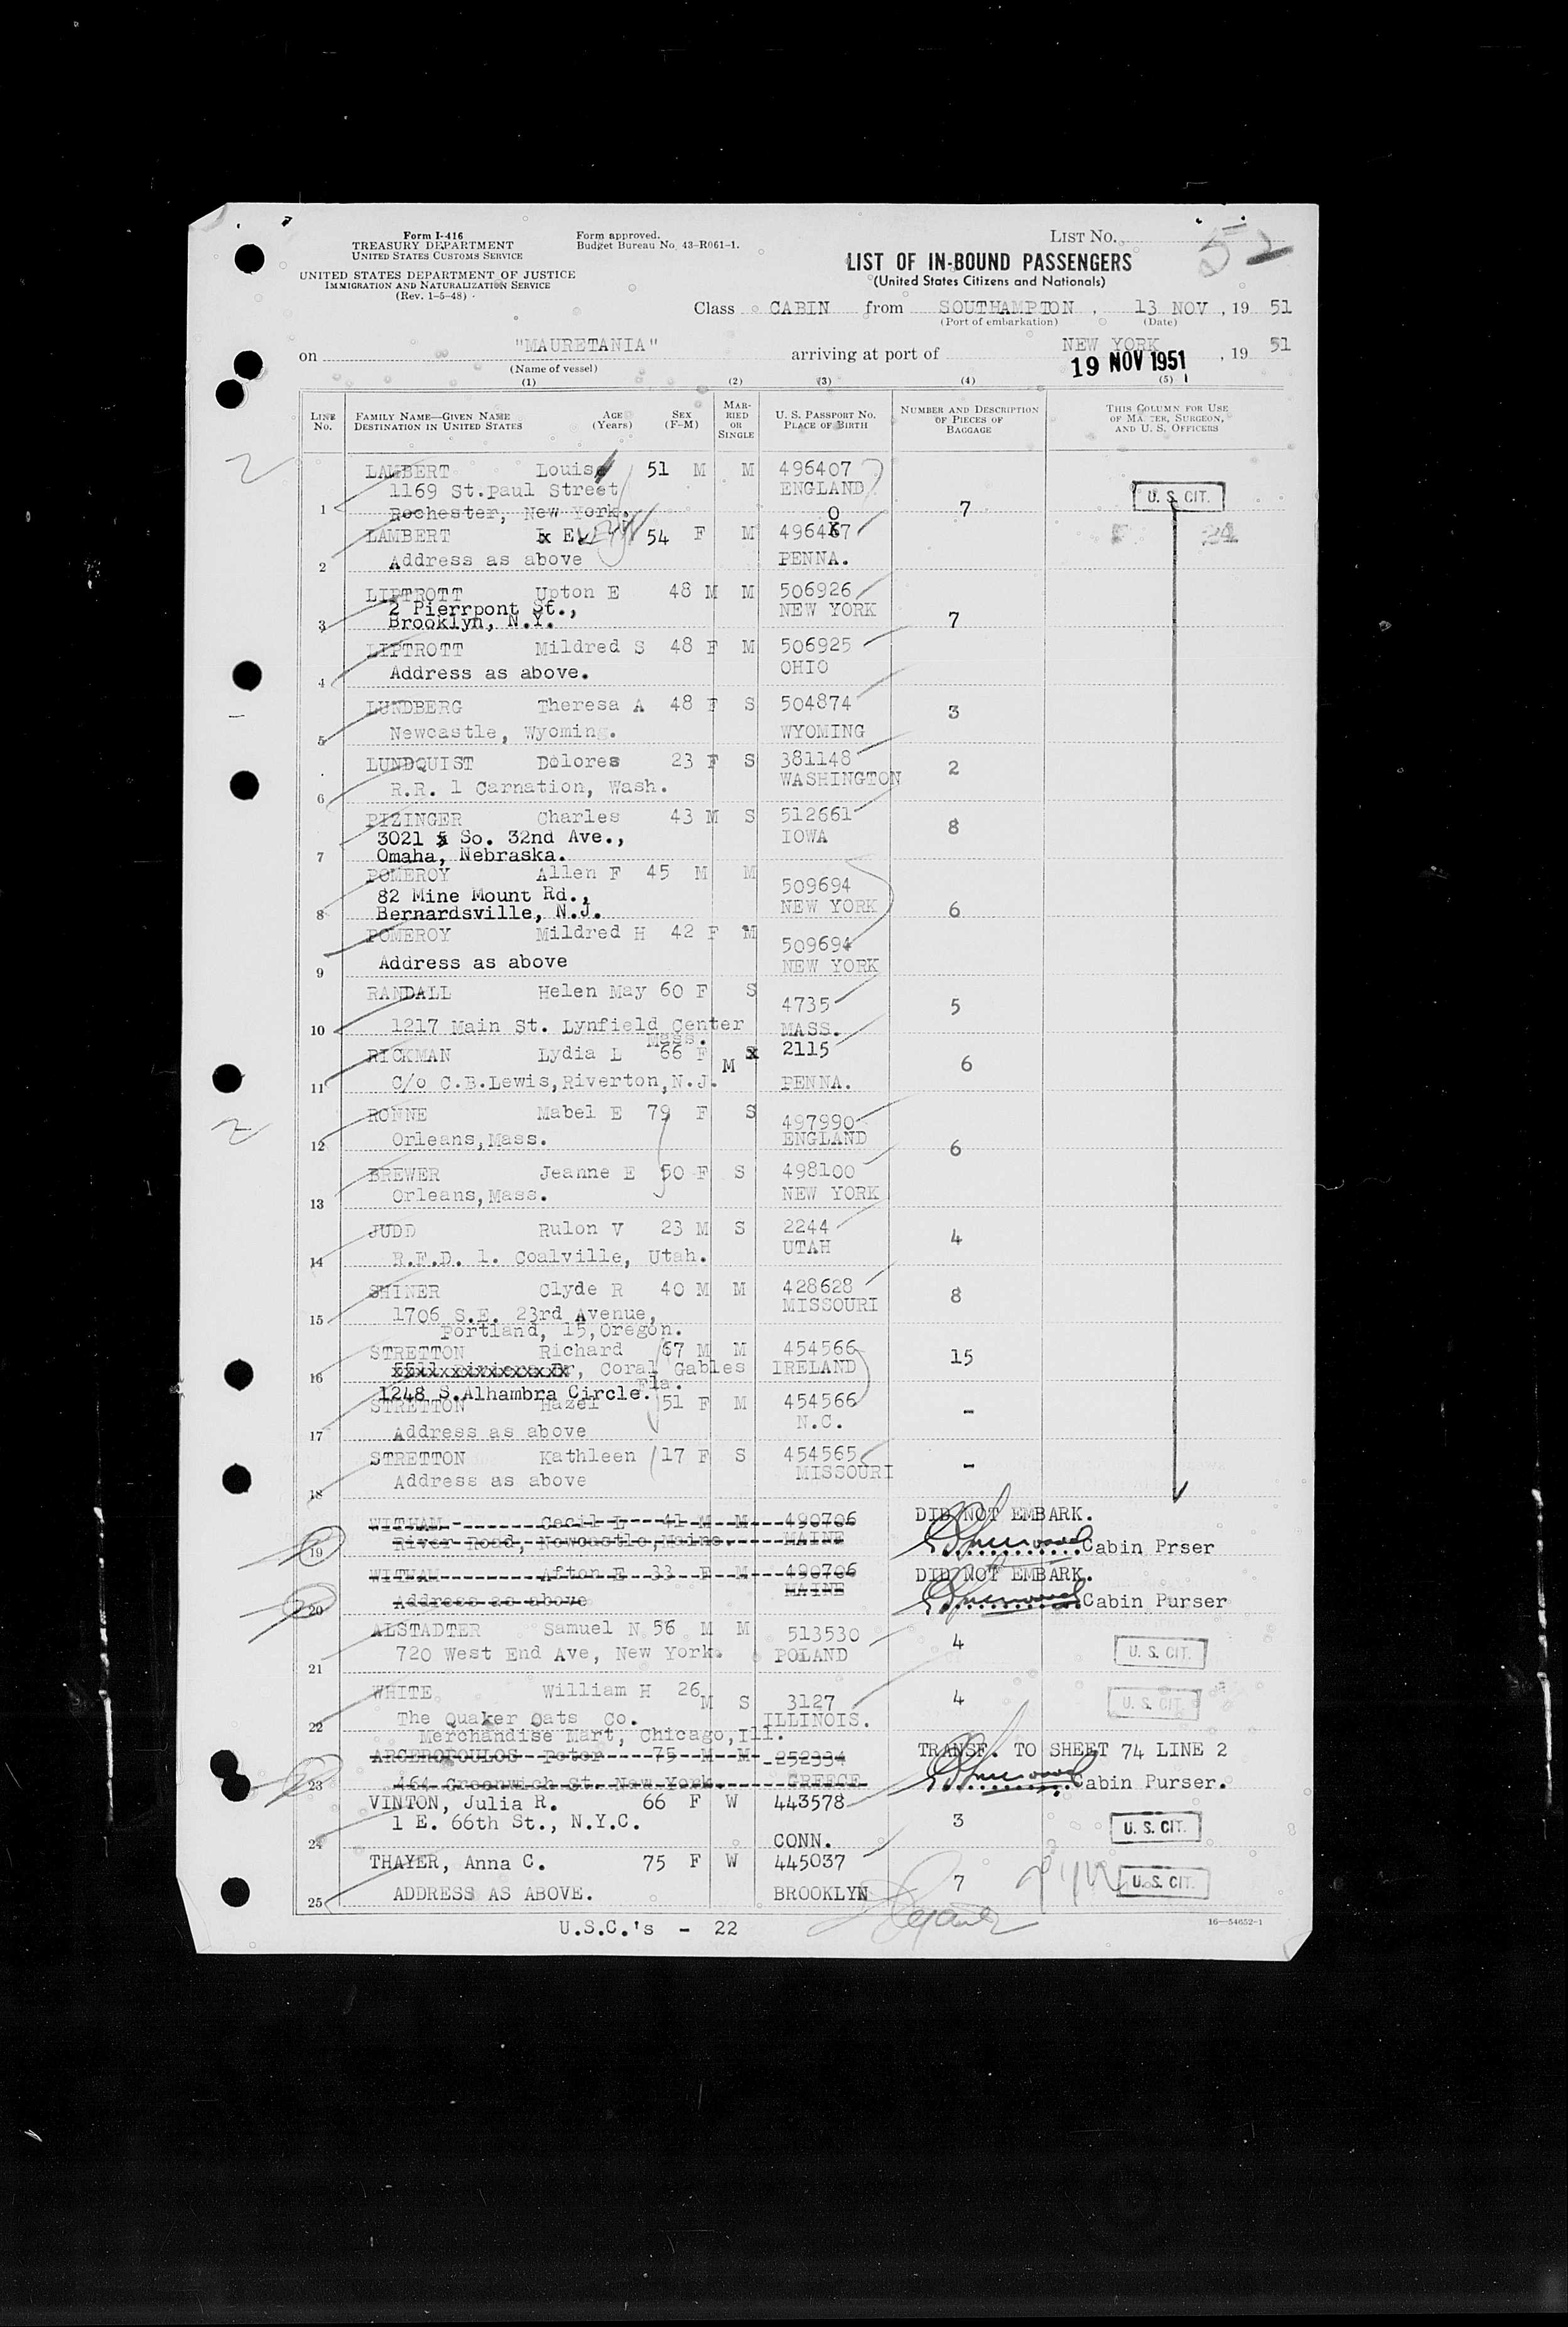 Form I-416
TREASURY DEPARTMENT
UNITED STATES CUSTOMS SERVICE
UNITED STATES DEPARTMENT OF JUSTICE
IMMIGRATION AND NATURALIZATION SERVICE
(Rev. 1-5-48)
Form approved.
Budget Bureau No. 43-R061-1.
LIST NO.
52
LIST OF IN-BOUND PASSENGERS
(United States Citizens and Nationals)
Class CABIN from SOUTHAMPTON, 13 NOV, 19 51
(Port of embarkation) (Date)
on "MAURETANIA" arriving at port of NEW YORK, 19 51
19 NOV 1951
(Name of vessel)
(1) (2) (3) (4) (5)
LINE No. FAMILY NAME—GIVEN NAME DESTINATION IN UNITED STATES AGE (Years) SEX (F-M) MARRIED OR SINGLE U. S. PASSPORT NO. PLACE OF BIRTH NUMBER AND DESCRIPTION OF PIECES OF BAGGAGE THIS COLUMN FOR USE OF MASTER, SURGEON, AND U. S. OFFICERS
LAMBERT Louis 51 M M 496407
1169 St.Paul Street ENGLAND
1 Rochester, New York. 7 U. S. CIT.
LAMBERT E 54 F M 496407
2 Address as above PENNA.
LIPTROTT Upton E 48 M M 506926
2 Pierrpont St., NEW YORK
3 Brooklyn, N.Y. 7
LIPTROTT Mildred S 48 F M 506925
4 Address as above. OHIO
LUNDBERG Theresa A 48 F S 504874 3
5 Newcastle, Wyoming. WYOMING
LUNDQUIST Dolores 23 F S 381148 2
6 R.R. 1 Carnation, Wash. WASHINGTON
PIZINGER Charles 43 M S 512661 8
3021 So. 32nd Ave., IOWA
7 Omaha, Nebraska.
POMEROY Allen F 45 M M 509694
82 Mine Mount Rd., NEW YORK 6
8 Bernardsville, N.J.
POMEROY Mildred H 42 F M 509694
9 Address as above NEW YORK
RANDALL Helen May 60 F S 4735 5
10 1217 Main St. Lynfield Center MASS.
Mass.
RICKMAN Lydia L 66 F M 2115 6
11 C/o C.B.Lewis,Riverton,N.J. PENNA.
RONNE Mabel E 79 F S 497990
12 Orleans,Mass. ENGLAND 6
BREWER Jeanne E 50 F S 498100
13 Orleans,Mass. NEW YORK
JUDD Rulon V 23 M S 2244 4
14 R.F.D. 1. Coalville, Utah. UTAH
SHINER Clyde R 40 M M 428628 8
15 1706 S.E. 23rd Avenue, MISSOURI
Portland, 15,Oregon.
STRETTON Richard 67 M M 454566 15
16 Coral Gables IRELAND
Fla.
1248 S.Alhambra Circle.
STRETTON Hazel 51 F M 454566 -
17 Address as above N.C.
STRETTON Kathleen 17 F S 454565 -
18 Address as above MISSOURI
WITHAM Cecil L 41 M M 490706 DID NOT EMBARK.
19 River Road, Newcastle,Maine. MAINE Cabin Prser
WITHAM Afton E 33 F M 490706 DID NOT EMBARK.
MAINE
20 Address as above Cabin Purser
ALSTADTER Samuel N 56 M M 513530 4
21 720 West End Ave, New York. POLAND U. S. CIT.
WHITE William H 26 M S 3127 4 U. S. CIT.
22 The Quaker Oats Co. ILLINOIS.
Merchandise Mart, Chicago,Ill.
ARGEROPOULOS Peter 75 M M 252334 TRANSF. TO SHEET 74 LINE 2
23 464 Greenwich St. New York. GREECE Cabin Purser.
VINTON, Julia R. 66 F W 443578
1 E. 66th St., N.Y.C. 3 U. S. CIT.
24 CONN.
THAYER, Anna C. 75 F W 445037
25 ADDRESS AS ABOVE. BROOKLYN 7 U. S. CIT.
U.S.C.'s - 22
16—54652-1